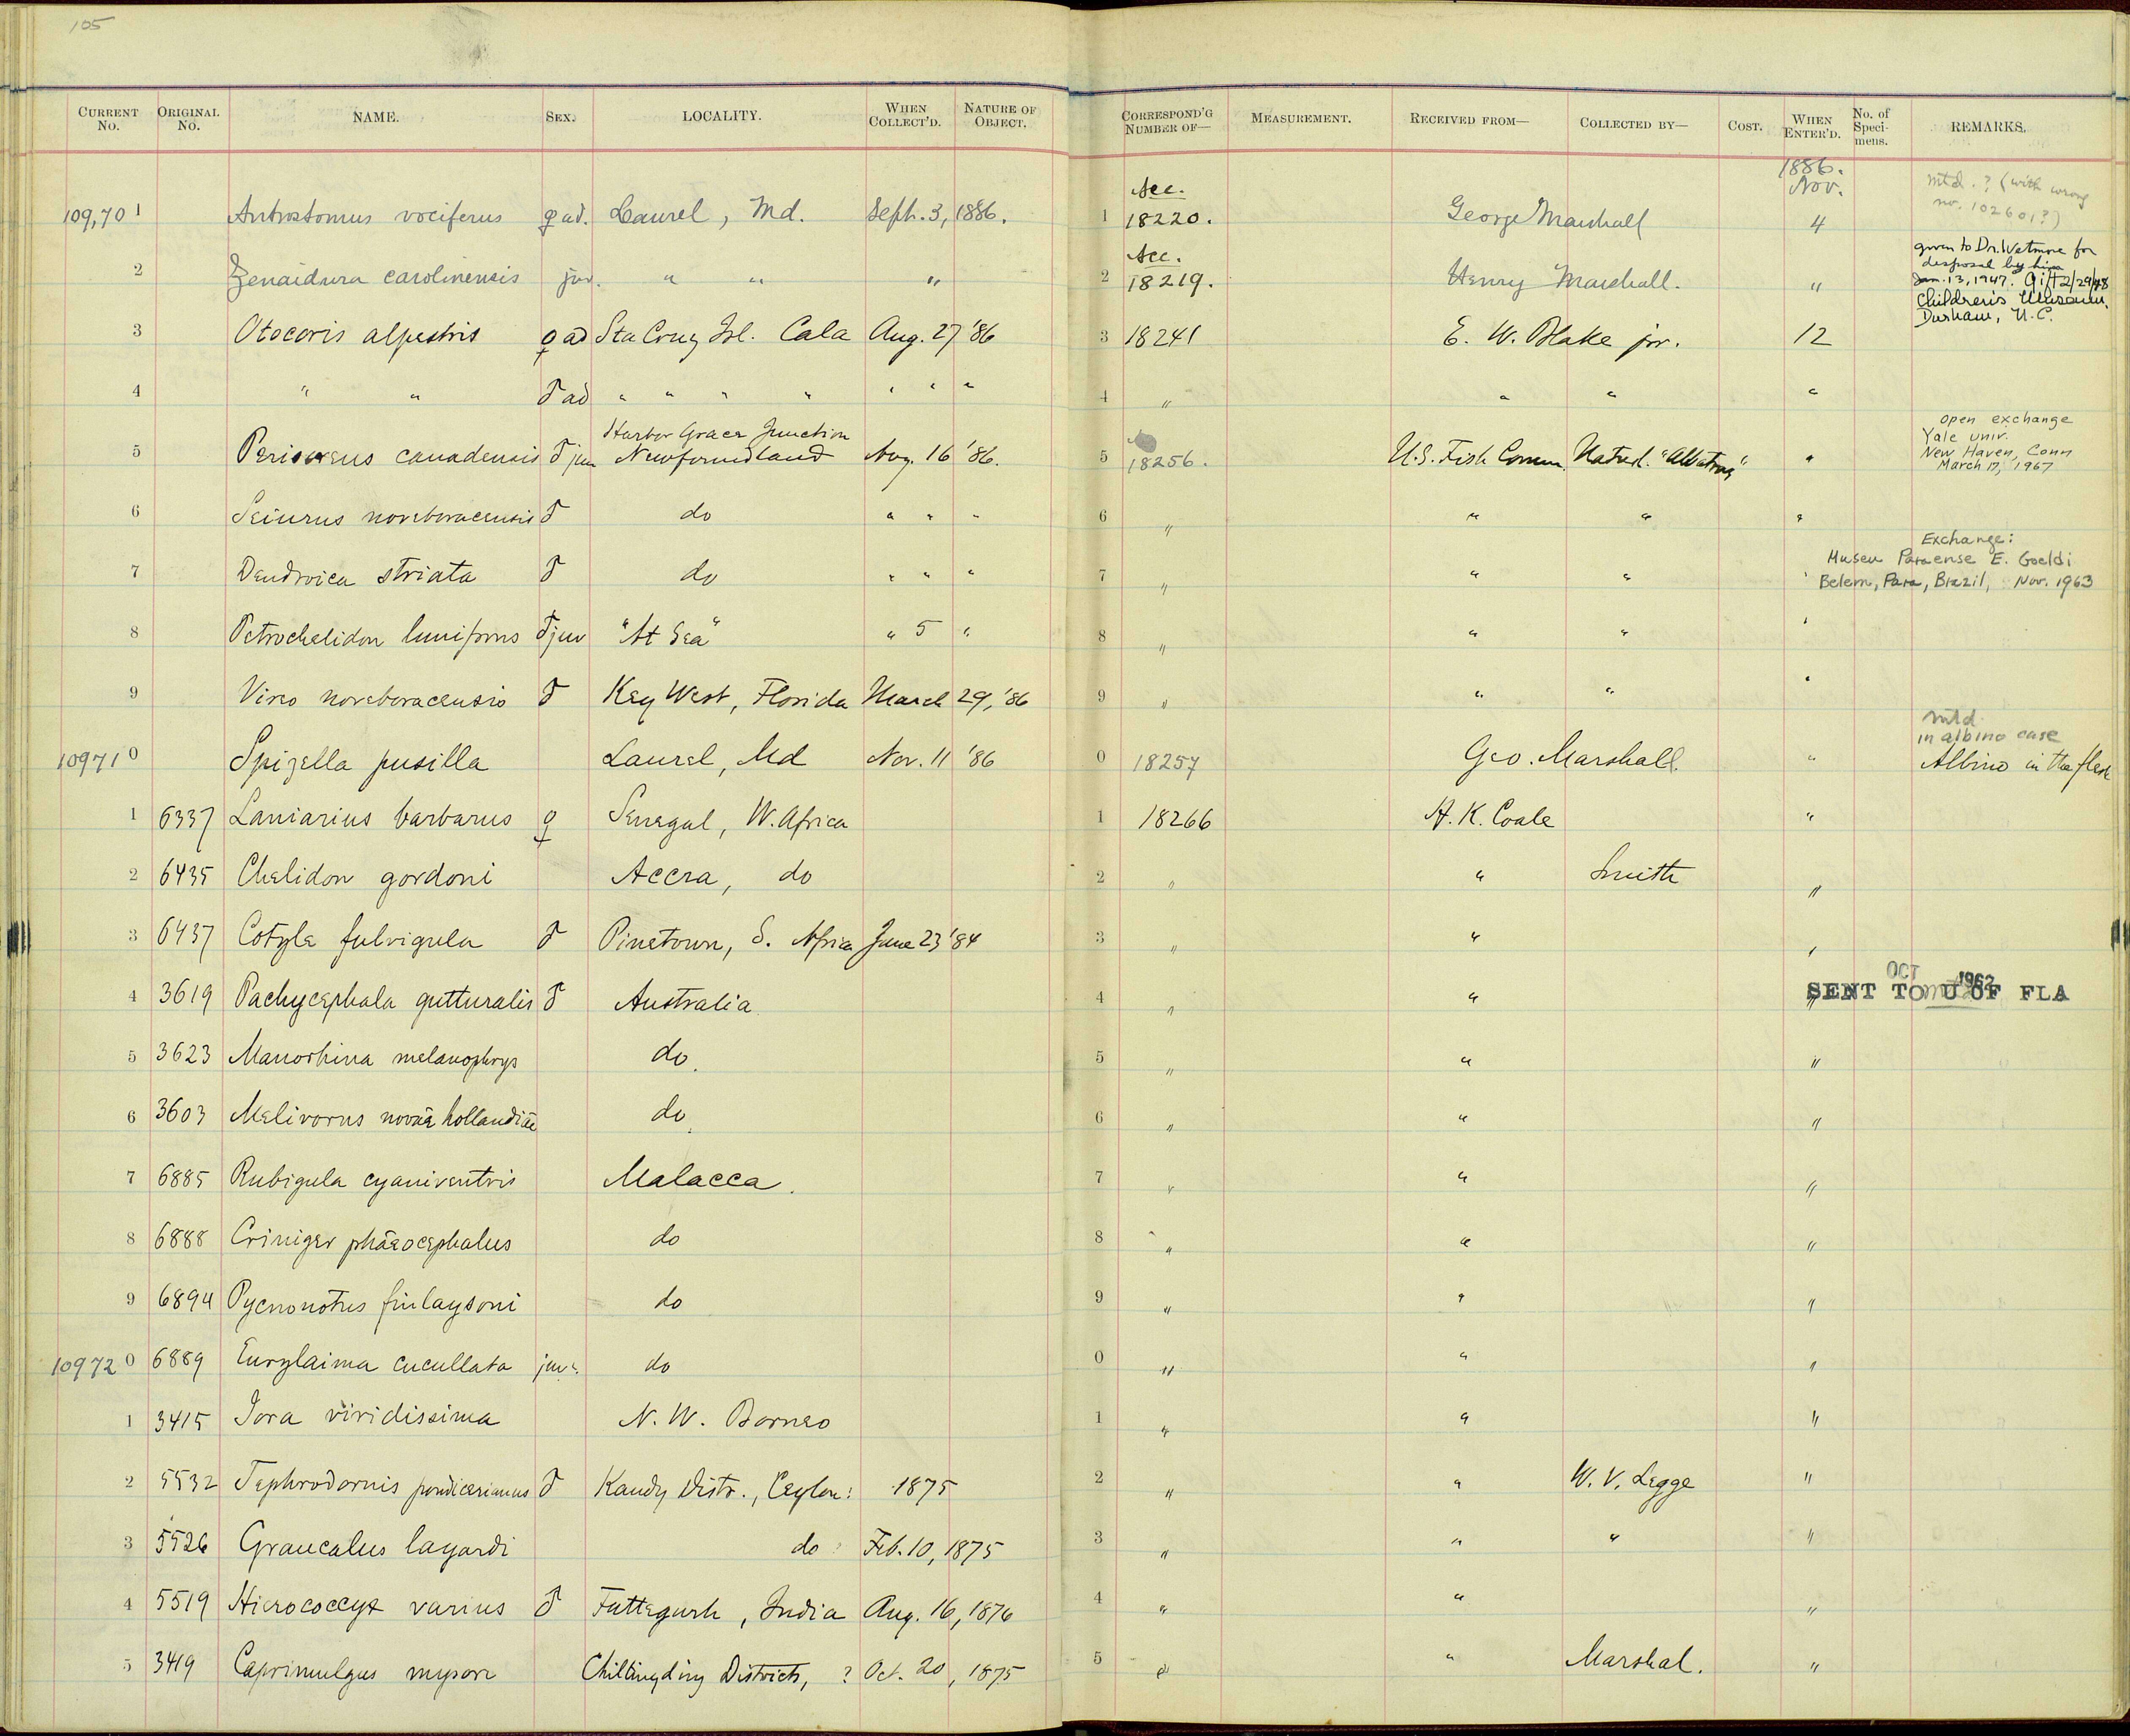 105
CURRENT No. ORIGINAL No. NAME. SEX. LOCALITY. WHEN COLLECT'D. NATURE OF OBJECT. CORRESPOND'G NUMBER OF— MEASUREMENT. RECEIVED FROM— COLLECTED BY— COST. WHEN ENTER'D. No. of Specimens. REMARKS.
1886.
109,70 1 Antrostomus vociferus ♀ ad. Laurel, Md. Sept. 3, 1886. 1 Acc. 18220. George Marshall Nov. 4 mtd. ? (with wrong no. 102601?)
2 Zenaidura carolinensis juv. " " " 2 Acc. 18219. Henry Marshall. " given to Dr. Wetmore for
disposal by him
Jan. 13, 1947. Gift 2/29/48
Children's Museum,
Durham, N.C.
3 Otocoris alpestris ♀ ad Sta Cruz Isl. Cala Aug. 27 '86 3 18241 E. W. Blake jor. 12
4 " " ♂ ad " " " " " " " 4 " " " "
5 Perisoreus canadensis ♂ juv Harbor Grace Junction Newfoundland Aug. 16 '86. 5 18256. U.S. Fish Comm. Natural. "Albatross" " open exchange
Yale Univ.
New Haven, Conn
March 17, 1967
6 Seiurus noveboracensis ♂ do " " " 6 " " " "
7 Dendroica striata ♂ do " " " 7 " " " " Exchange:
Museu Paraense E. Goeldi
Belem, Para, Brazil, Nov. 1963
8 Petrochelidon lunifrons ♂ juv "At Sea" " 5 " 8 " " " "
9 Vireo noveboracensis ♂ Key West, Florida March 29, '86 9 " " " "
10971 0 Spizella pusilla Laurel, Md Nov. 11 '86 0 18257 Geo. Marshall. " mtd.
in albino case
Albino in the flesh
1 6337 Laniarius barbarus ♀ Senegal, W. Africa 1 18266 H. K. Coale "
2 6435 Chelidon gordoni Accra, do 2 " " Smith "
3 6437 Cotyle fulvigula ♂ Pinetown, S. Africa June 23 '84 3 " " "
4 3619 Pachycephala gutturalis ♂ Australia 4 " " " SENT TO U OF FLA OCT 1962
5 3623 Manorhina melanophrys do. 5 " " "
6 3603 Melivorus novae hollandiae do. 6 " " "
7 6885 Rubigula cyaniventris Malacca. 7 " " "
8 6888 Criniger phaeocephalus do 8 " " "
9 6894 Pycnonotus finlaysoni do 9 " " "
10972 0 6889 Eurylaima cucullata juv. do 0 " " "
1 3415 Iora viridissima N. W. Borneo 1 " " "
2 5532 Tephrodornis pondicerianus ♂ Kandy Distr., Ceylon: 1875 2 " " W. V. Legge "
3 5526 Graucalus layardi do Feb. 10, 1875 3 " " " "
4 5519 Hierococcyx varius ♂ Futtegurh, India Aug. 16, 1876 4 " " "
5 3419 Caprimulgus Districts, ? Oct. 20, 1875 5 " " Marshal. "